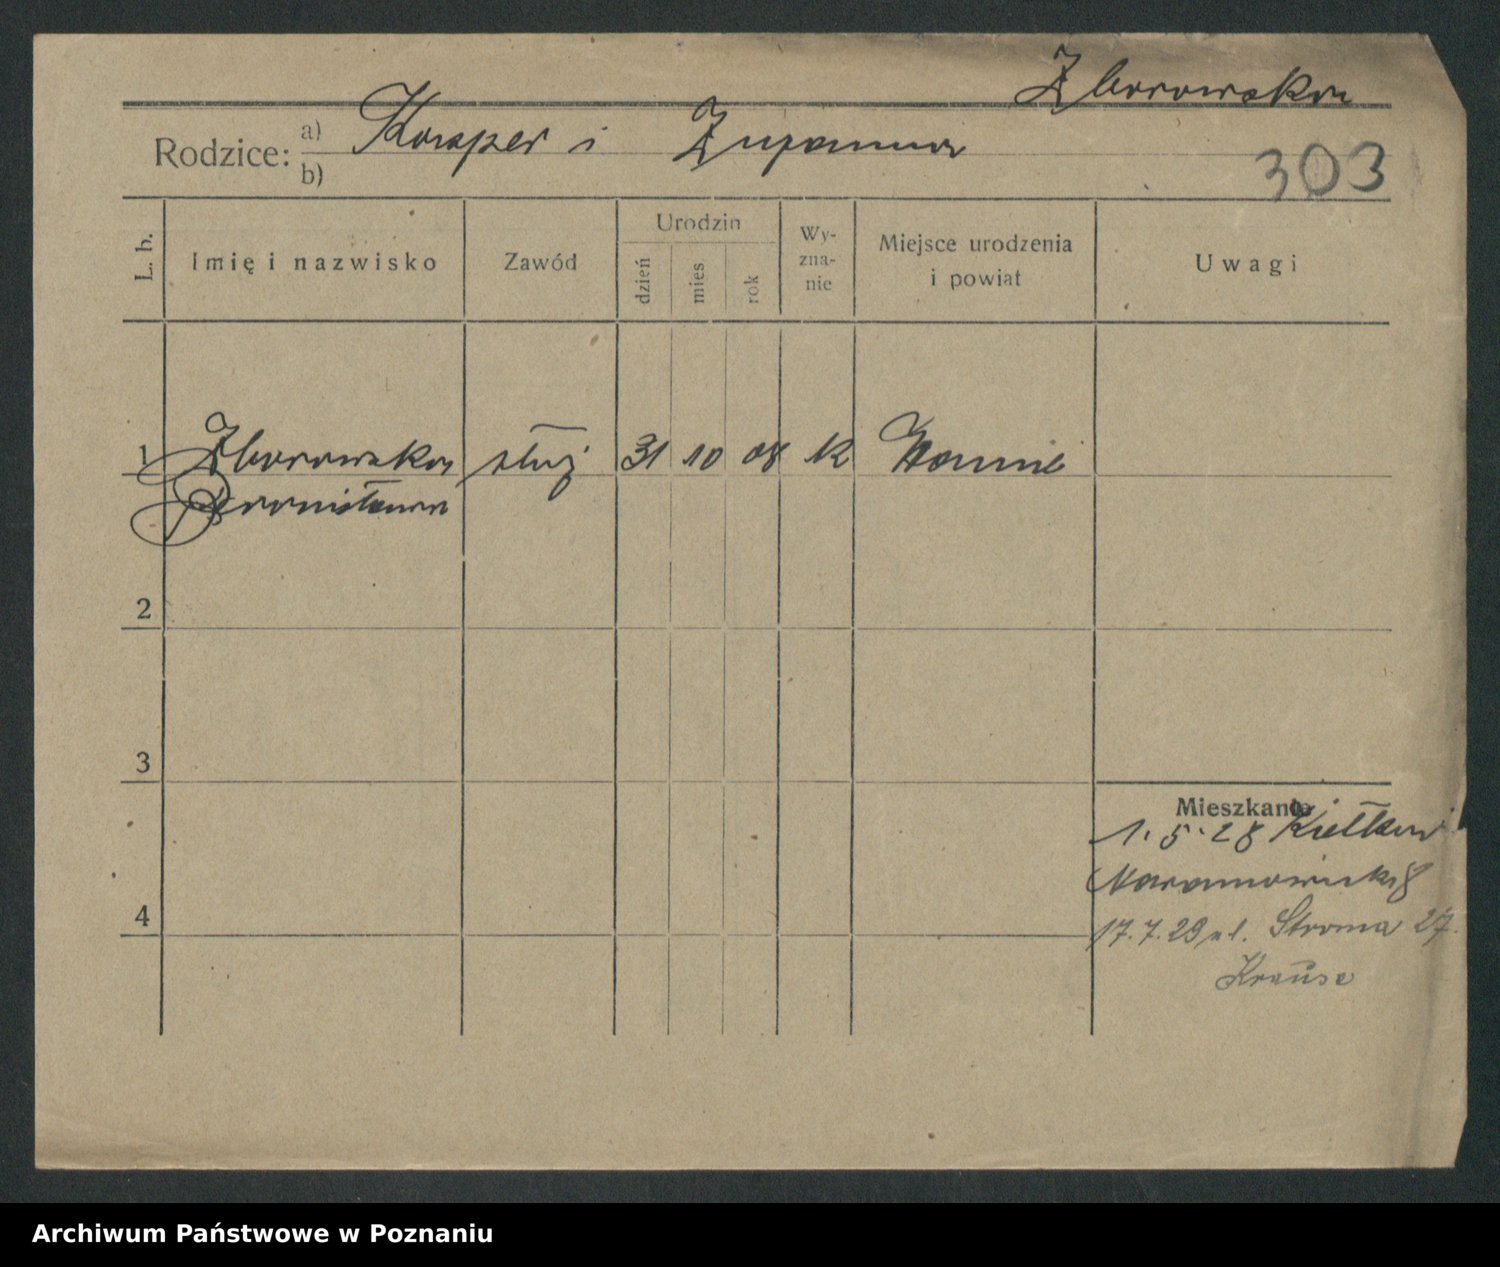 Zborowska
Rodzice: a) Kasper i Zuzanna
b)
303
L. b. Imię i nazwisko Zawód Urodzin dzień mies rok Wy-zna-nie Miejsce urodzenia i powiat Uwagi
1 Zborowska służ 31 10 08 k
Bronisława
2
3
Mieszkanie
1.5.28
Naramowicka 8
4
17.7.29 ul. Stroma 27.
Krause
Archiwum Państwowe w Poznaniu